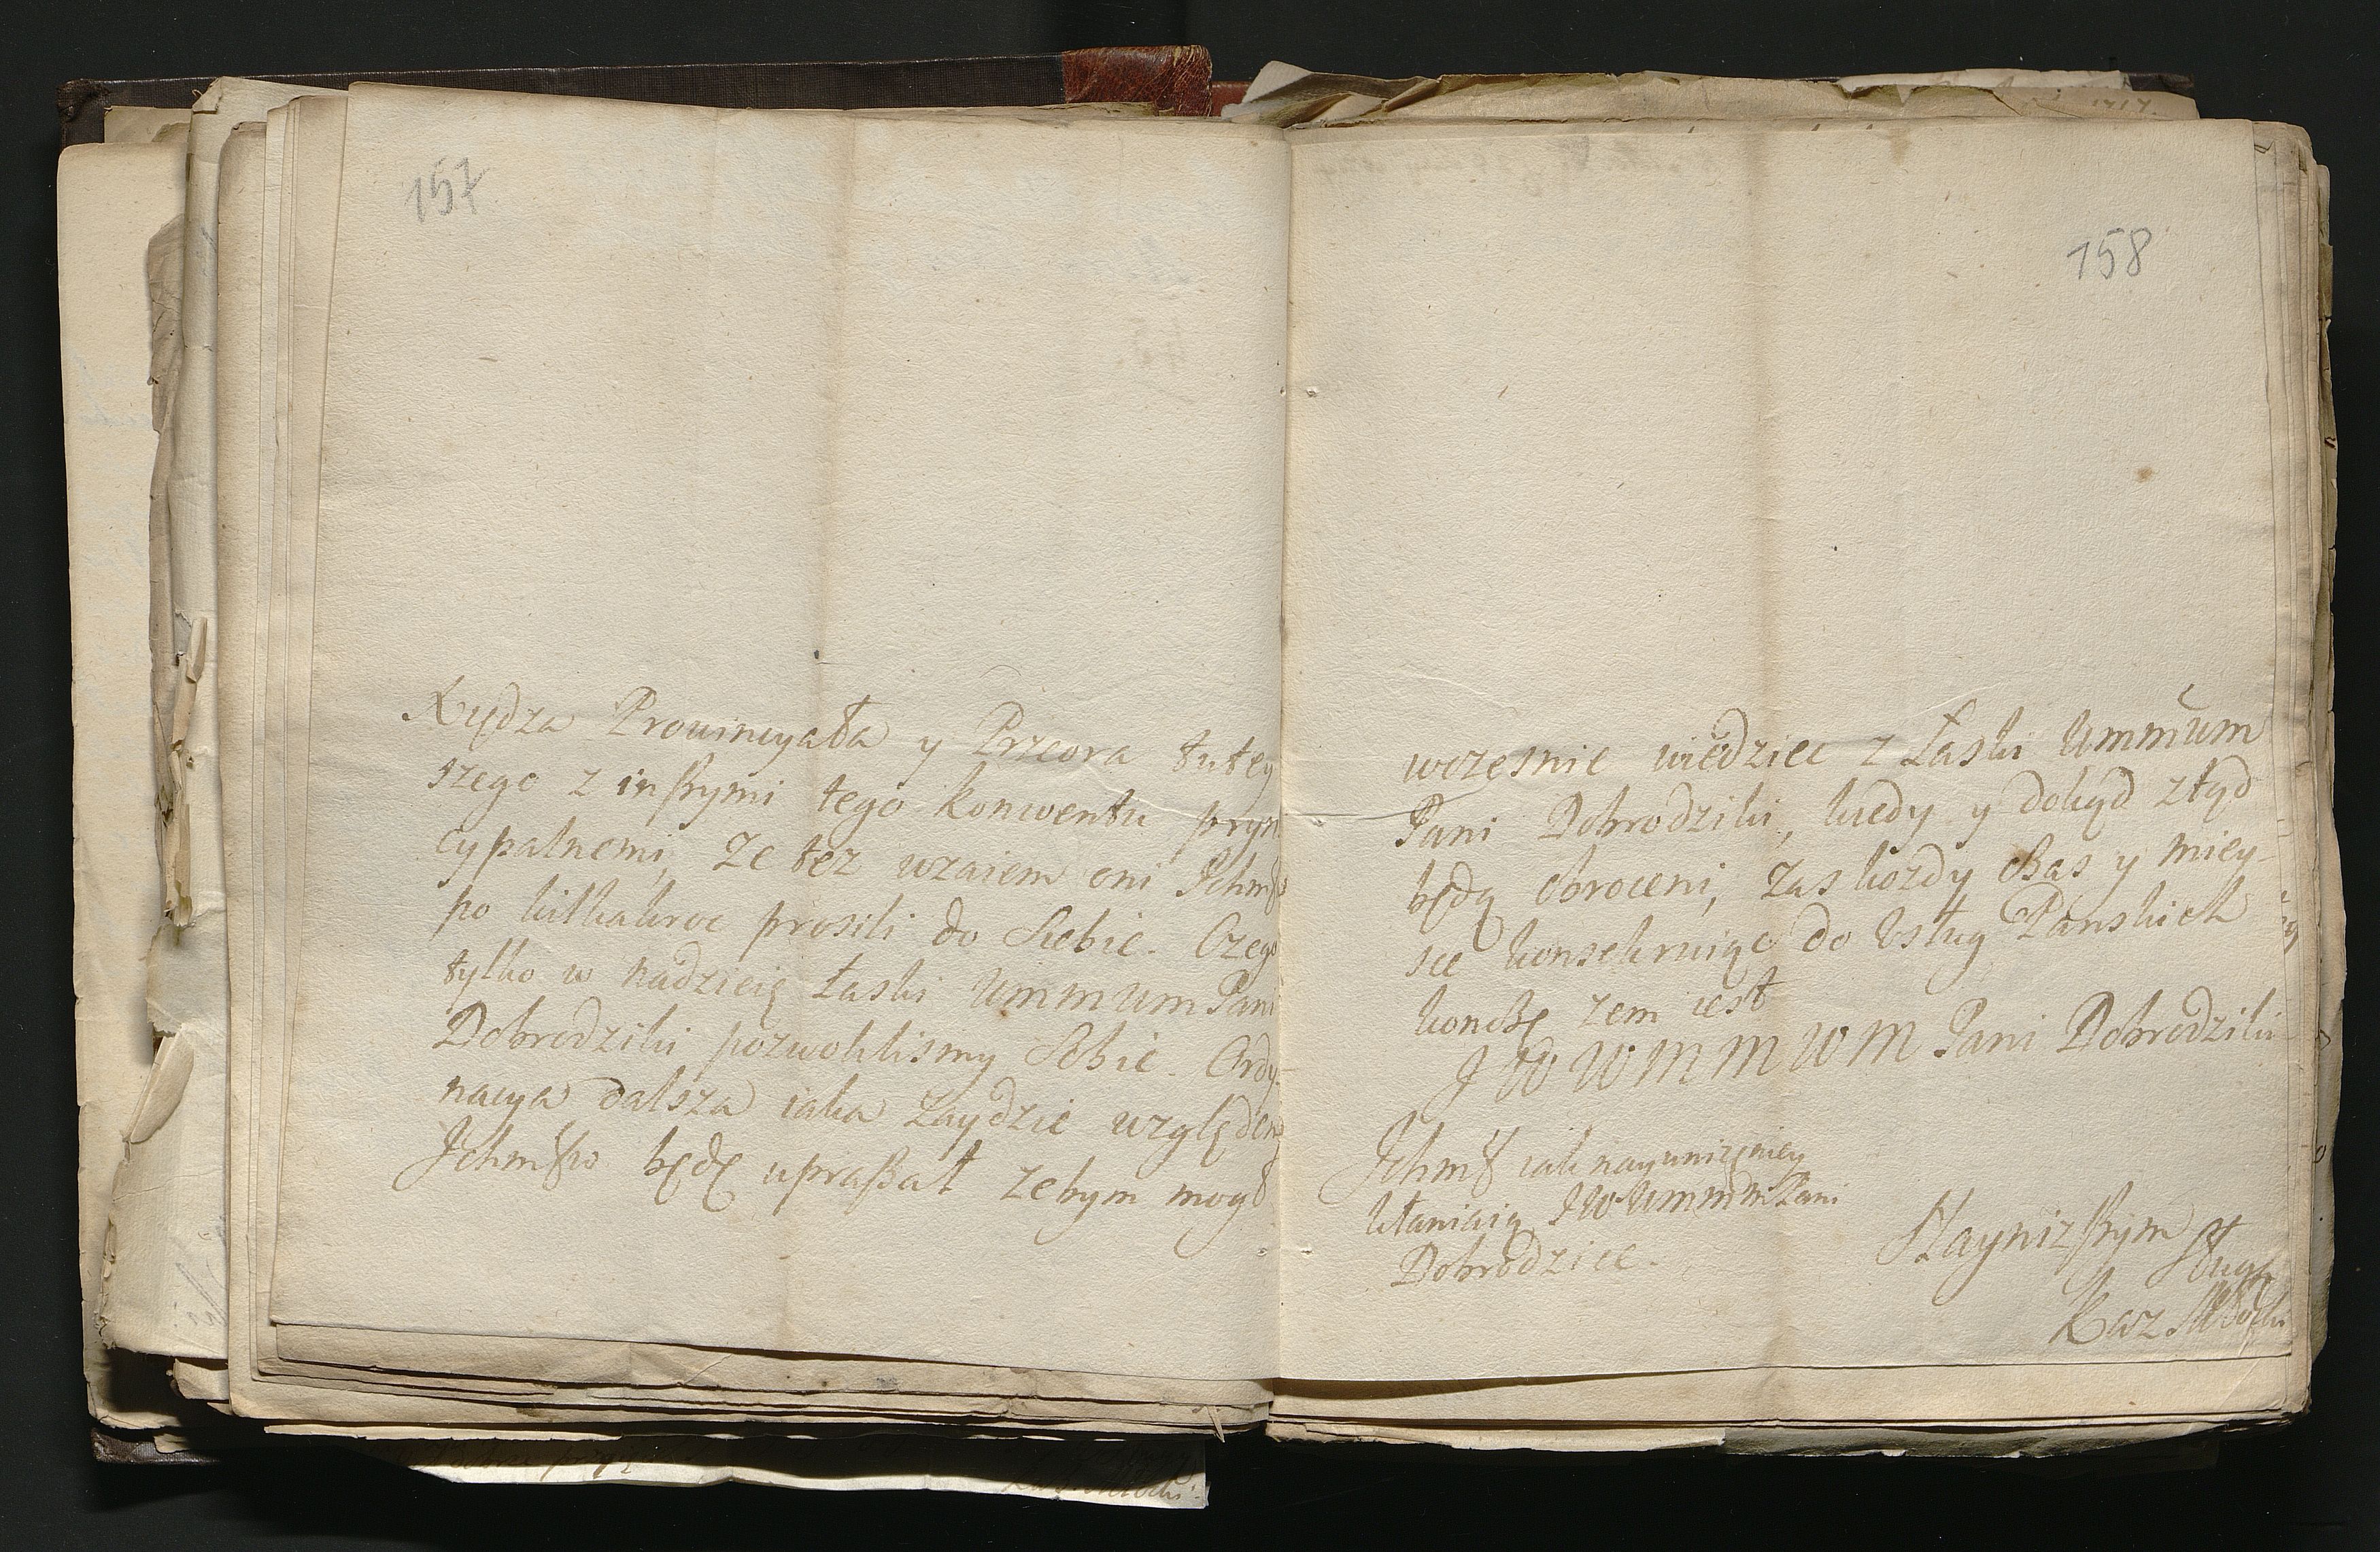 157
Xiędza Prowincyała y Przeora tutey
szego z inszymi tego konwentu pryn
cypalnemi, ze tez wzaiem oni Ichmś
po kilkakroc prosili do Siebie. Czego
tylko w nadzieię Łaski Wmmwm Pani
Dobrodziki pozwolilismy Sobie. Ordy-
nacya dalsza iaka zaydzie względem
Ichmśw będę upraszał zebym mogł
158
wczesnie wiedziec z Łaski Wmmwm
Pani Dobrodziki, kiedy y dokąd ztąd
będą obroceni, zas kozdy czas y miey-
sce konsekruiąc do Usług Panskich
konczę zem iest
J W W M M W M Pani Dobrodziki
Ichmś iak nayunizeniey
kłaniaią JWWmmm Pani
Dobrodzice.
Nayniższym Sługą
Kaz